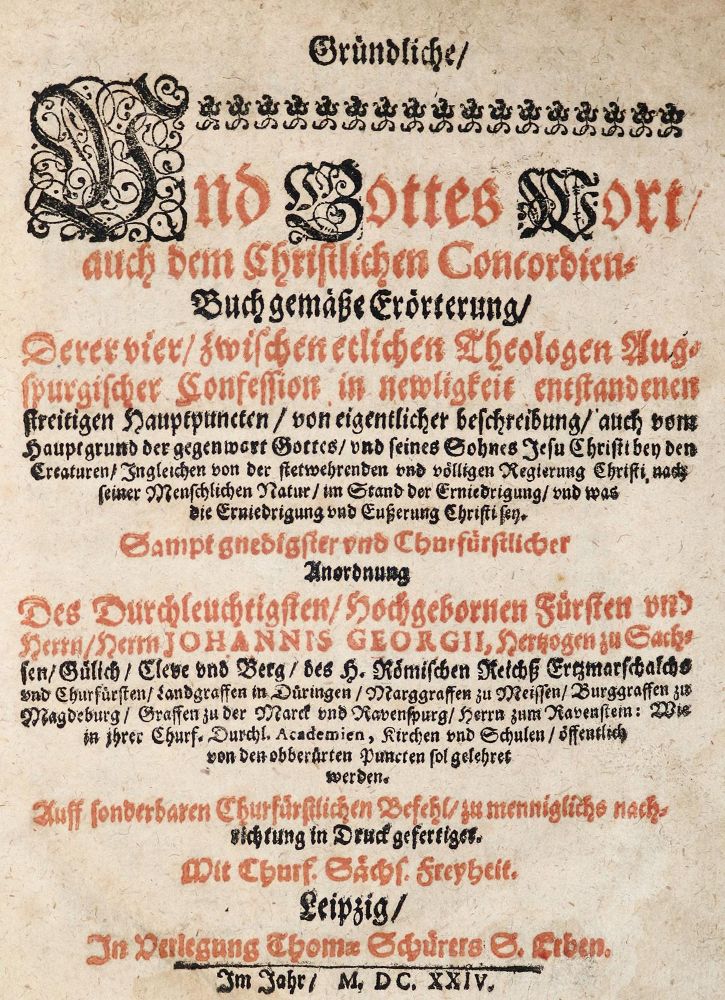 Gründliche/
Vnd Gottes Wort/
auch dem Christlichen Concordien-
Buch gemäße Erörterung/
Derer vier/ zwischen etlichen Theologen Aug-
spurgischer Confession in newligkeit entstandenen
streitigen Hauptpuncten/ von eigentlicher beschreibung/ auch vom
Hauptgrund der gegenwart Gottes/ vnd seines Sohnes Jesu Christi bey den
Creaturen/ Ingleichen von der stetwehrenden vnd völligen Regierung Christi nach
seiner Menschlichen Natur/ im Stand der Erniedrigung/ vnd was
die Erniedrigung vnd Eußerung Christi sey.
Sampt gnedigster vnd Churfürstlicher
Anordnung
Des Durchleuchtigsten/ Hochgebornen Fürsten vnd
Herrn/ Herrn JOHANNIS GEORGII, Hertzogen zu Sach-
sen/ Gülich/ Cleve vnd Berg/ des H. Römischen Reichß Ertzmarschalchs
vnd Churfürsten/ Landgraffen in Düringen/ Marggraffen zu Meissen/ Burggraffen zu
Magdeburg/ Graffen zu der Marck vnd Ravenspurg/ Herrn zum Ravenstein: Wie
in jhrer Churf. Durchl. Academien, Kirchen vnd Schulen/ öffentlich
von den obberürten Puncten sol gelehret
werden.
Auff sonderbaren Churfürstlichen Befehl/ zu menniglichs nach-
richtung in Druck gefertiget.
Mit Churf. Sächs. Freyheit.
Leipzig/
In Verlegung Thomæ Schürers S. Erben.
Im Jahr/ M. DC. XXIV.